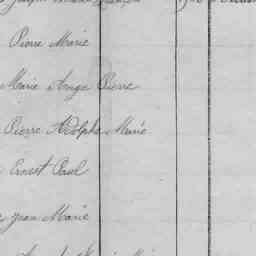 Pierre Marie
Marie Ange Pierre
Pierre Adolphe Marie
Ernest Paul
Jean Marie